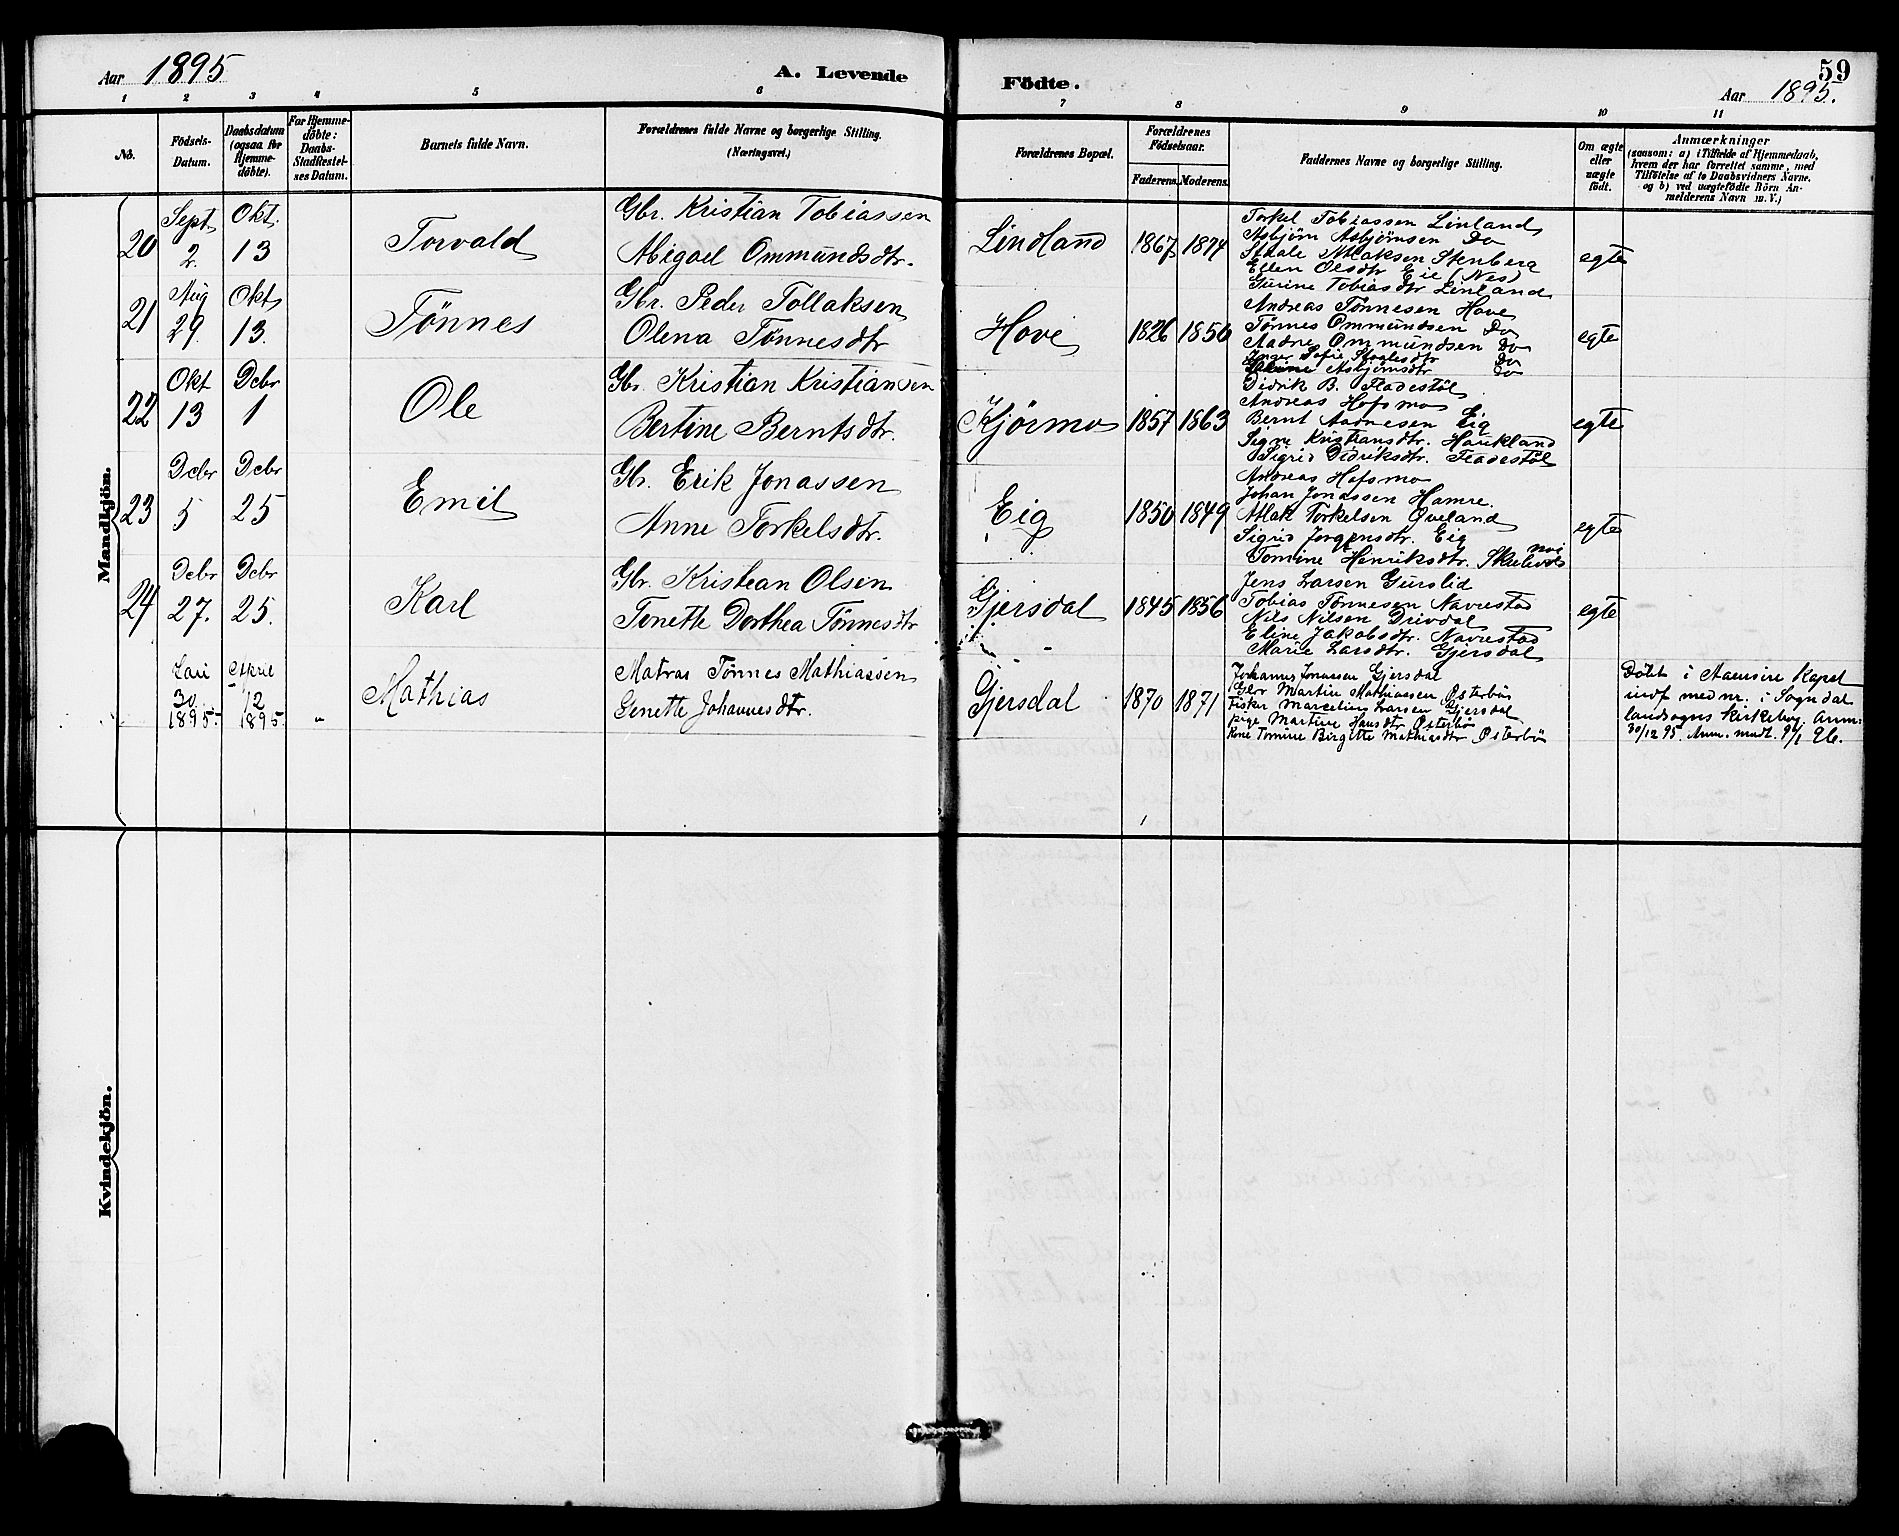 Aar 1895
A. Levende
Födte.
59
Aar 1895.
1 2 3 4 5 6 7 8 9 10 11
No.
Födsels-
Datum.
Daabsdatum
(ogsaa for
Hjemme-
döbte).
For Hjemme-
döbte:
Daabs-
Stadfestel-
ses Datum.
Barnets fulde Navn.
Forældrenes fulde Navne og borgerlige Stilling.
(Næringsvei.)
Forældrenes Bopæl.
Forældrenes
Födselsaar.
Faderens. Moderens.
Faddernes Navne og borgerlige Stilling.
Om ægte
eller
uægte
födt.
Anmærkninger
(saasom: a) i Tilfælde af Hjemmedaab,
hvem der har forrettet samme, med
Tilföielse af to Daabsvidners Navne.
og b) ved uægtefödte Börn An-
melderens Navn m. V.)
Mandkjön.
20
Sept
2.
Okt.
13
Torvald
Gbr. Kristian Tobiassen
Abigael Ommundsdtr.
Lindland
1867 1874
Torkel Tobiassen Linland
Asbjörn Asbjörnsen Do
Staale Atlaksen Stenberg
Ellen Olsdtr Eie (Nes)
Gurine Tobiasdtr Linland
egte
21
Aug
29.
Okt
13.
Tönnes
Gbr. Peder Tollaksen
Olena Tönnesdtr
Hove
1826 1850
Andreas Tönnesen Hove
Tönnes Ommundsen Do
Aadne Ommundsen Do
Inger Sofie Staalesdtr Do
Asbjörnsdtr Do
egte
22
Okt
13
Dcbr
1
Ole
Gbr. Kristian Kristiansen
Bertine Berntsdtr.
Kjörmo
1857 1863
Didrik B. Fladestöl
Andreas Hofsmo
Bernt Aadnesen Eig
Signe Kristiansdtr. Haukland
Sigrid Didriksdtr. Fladestöl
egte
23
Dcbr
5
Dcbr
25
Emil
Gbr. Erik Jonassen
Anne Torkelsdtr.
Eig
1850 1849
Andreas Hofsmo
Johan Jonassen Hamre.
Atlak Torkelsen Qveland
Sigrid Jörgensdtr. Eig
Tomine Henriksdtr.
egte
24
Dcbr
27.
Dcbr
25.
Karl
Gbr. Kristean Olsen
Tonette Dorthea Tönnesdtr
Gjersdal
1845 1856
Jens Larsen Gurslid
Tobias Tönnesen Navrestad
Nils Nilsen Drivdal
Eline Jakobsdtr. Navrestad
Marie Larsdtr. Gjersdal
egte
30.
1895.
April
12
1895.
"
Mathias
Matros Tönnes Mathiassen
Genette Johannesdtr.
Gjersdal
1870 1871
Johannes Jonassen Gjersdal
Gbr Martin Mathiassen Österbö
Fisker Marcelius Larsen Gjersdal
Pige Martine Hansdtr Österbö
Kone Tomine Birgitte Mathiasdtr Österbö
Döbt i Aaensire Kapel
indf med nr. i Sogndal
landsogns Kirkebog. Anm.
30/12 95. Anm. modt. 9/1 96.
Kvindekjön.